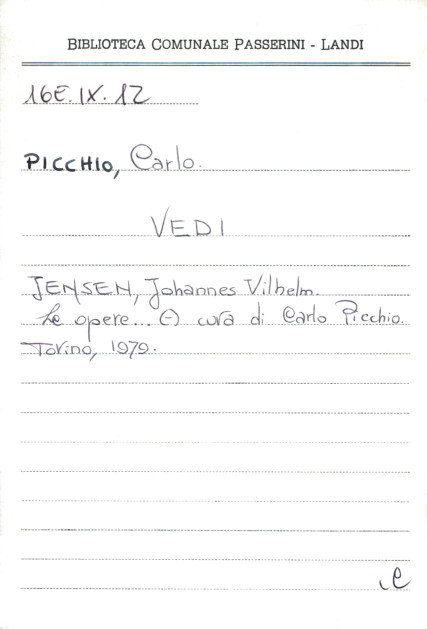 BIBLIOTECA COMUNALE PASSERINI - LANDI
16E.IX.12
PICCHIO, Carlo.
VEDI
JENSEN, Johannes Vilhelm.
Le opere... (-) cura di Carlo Picchio.
Torino, 1979.